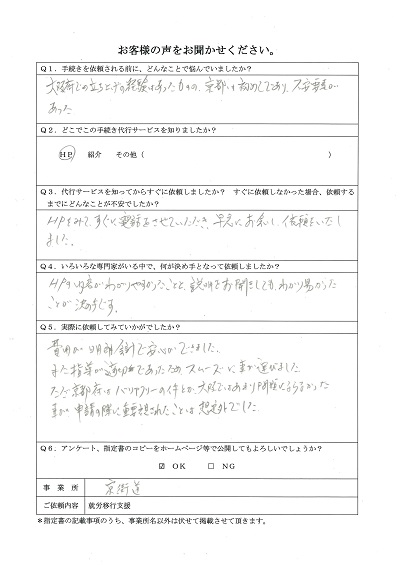 お客様の声をお聞かせください。
Q１．手続きを依頼される前に、どんなことで悩んでいましたか？
大阪府での立ち上げの経験はあったものの、京都は初めてであり、不安要素が
あった
Q２．どこでこの手続代行サービスを知りましたか？
HP　紹介　その他（　　　　　　　）
Q３．代行サービスを知ってからすぐに依頼しましたか？　すぐに依頼しなかった場合、依頼する
までにどんなことが不安でしたか？
HPをみて、すぐに電話をさせていただき、早急にお会いし、依頼をいたし
ました。
Q４．いろいろな専門家がいる中で、何が決め手となって依頼しましたか？
HPの内容がわかりやすかったことと、説明をお聞きしても、わかり易かった
ことが決め手です。
Q５．実際に依頼してみていかがでしたか？
費用が明朗会計で安心ができました。
また指導が適切であったためスムーズに事が運びました
ただ京都府はバリアフリーの件とか、大阪ではあまり問題にならなかった
事が申請の際に重要視されたことは想定外でした。
Q６．アンケート、指定書のコピーをホームページ等で公開してもよろしいでしょうか？
☑ ＯＫ　□ ＮＧ
事　業　所　京街道
ご依頼内容　就労移行支援
＊指定書の記載事項のうち、事業所名以外は伏せて掲載させて頂きます。